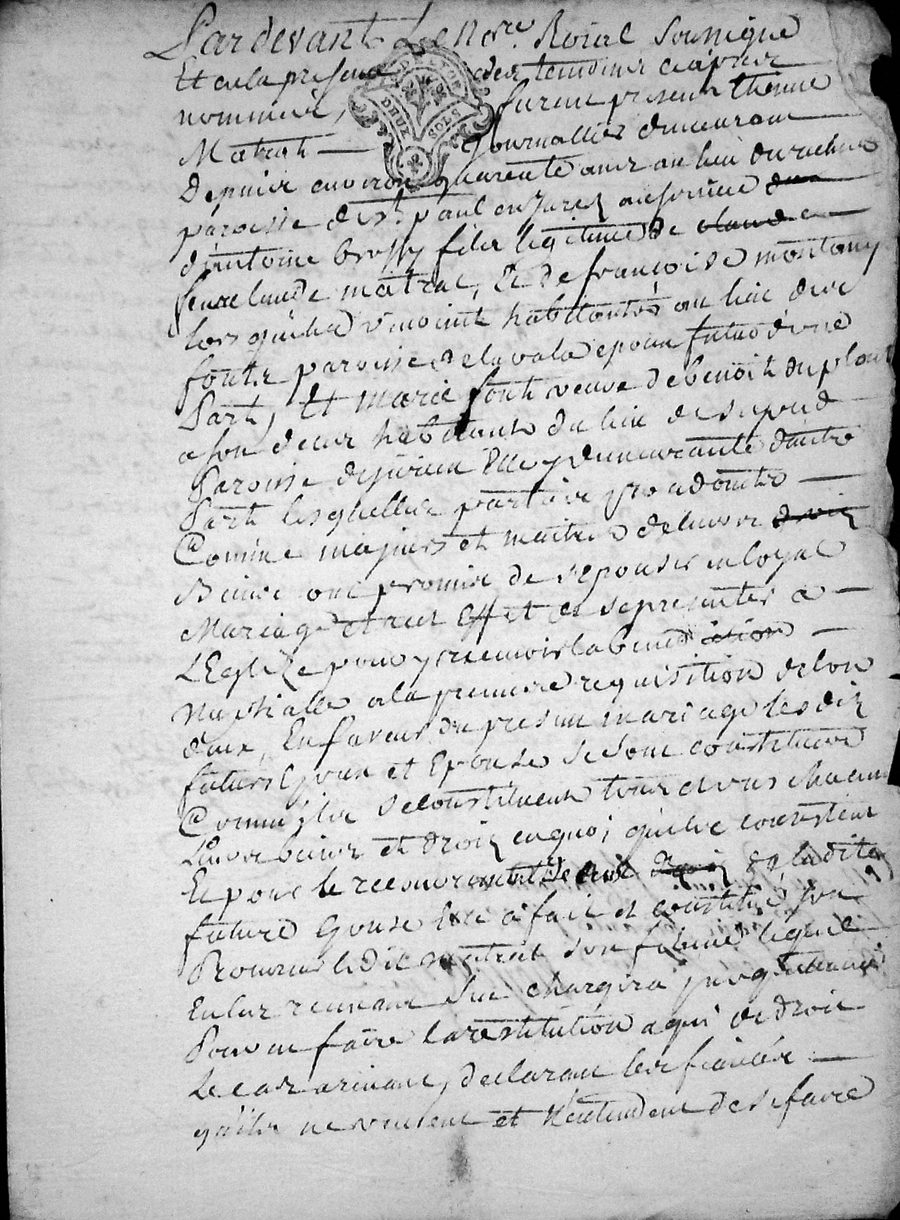 Pardevant Le nore. Roial soussigné
Et en la presence des temoins cy apres
nommés, furent presens Ethienne
DEUX SOLS
Matrat — Journallier demeurant
Depuis environ quarente ans au lieu du
paroisse de st paul en Jarez au service dun
d'antoine brossy fils legitime de claude
feu claude matrat, Et de françoise montany
lors quils vivoint habitants au lieu de la
font paroisse de lavala epoux futur d'une
Part, Et marie font veuve de benoit duplout
a son deces habitant du lieu de
Paroisse de jurieu Elle y demeurante d'autre
Part lesquelles parties
Comme majeurs et maitres de leurs droiz
Biens ont promis de sepouser en loyal
Mariage et a cet Effet de se presenter a
L'Eglize pour y recevoir la benediction
Nuptialle a la premiere requisition de lon
d'eux, En faveur du present mariage lesdiz
futurs Epoux et Epouse se sont constitués
Comme ils se constituent tous et uns chacuns
Leurs biens et droiz en quoi quils consistent
Et pour le recouvrement de ladite
future Epouse Elle a fait et constitué son
Procureur ledit matrat son futur lequel
En les recevant sen chargera
Pour en faire la restitution a qui de droit
Le cas arrivant, declarant les fiancés
qu'ils ne veulent et n'entendent de se faire